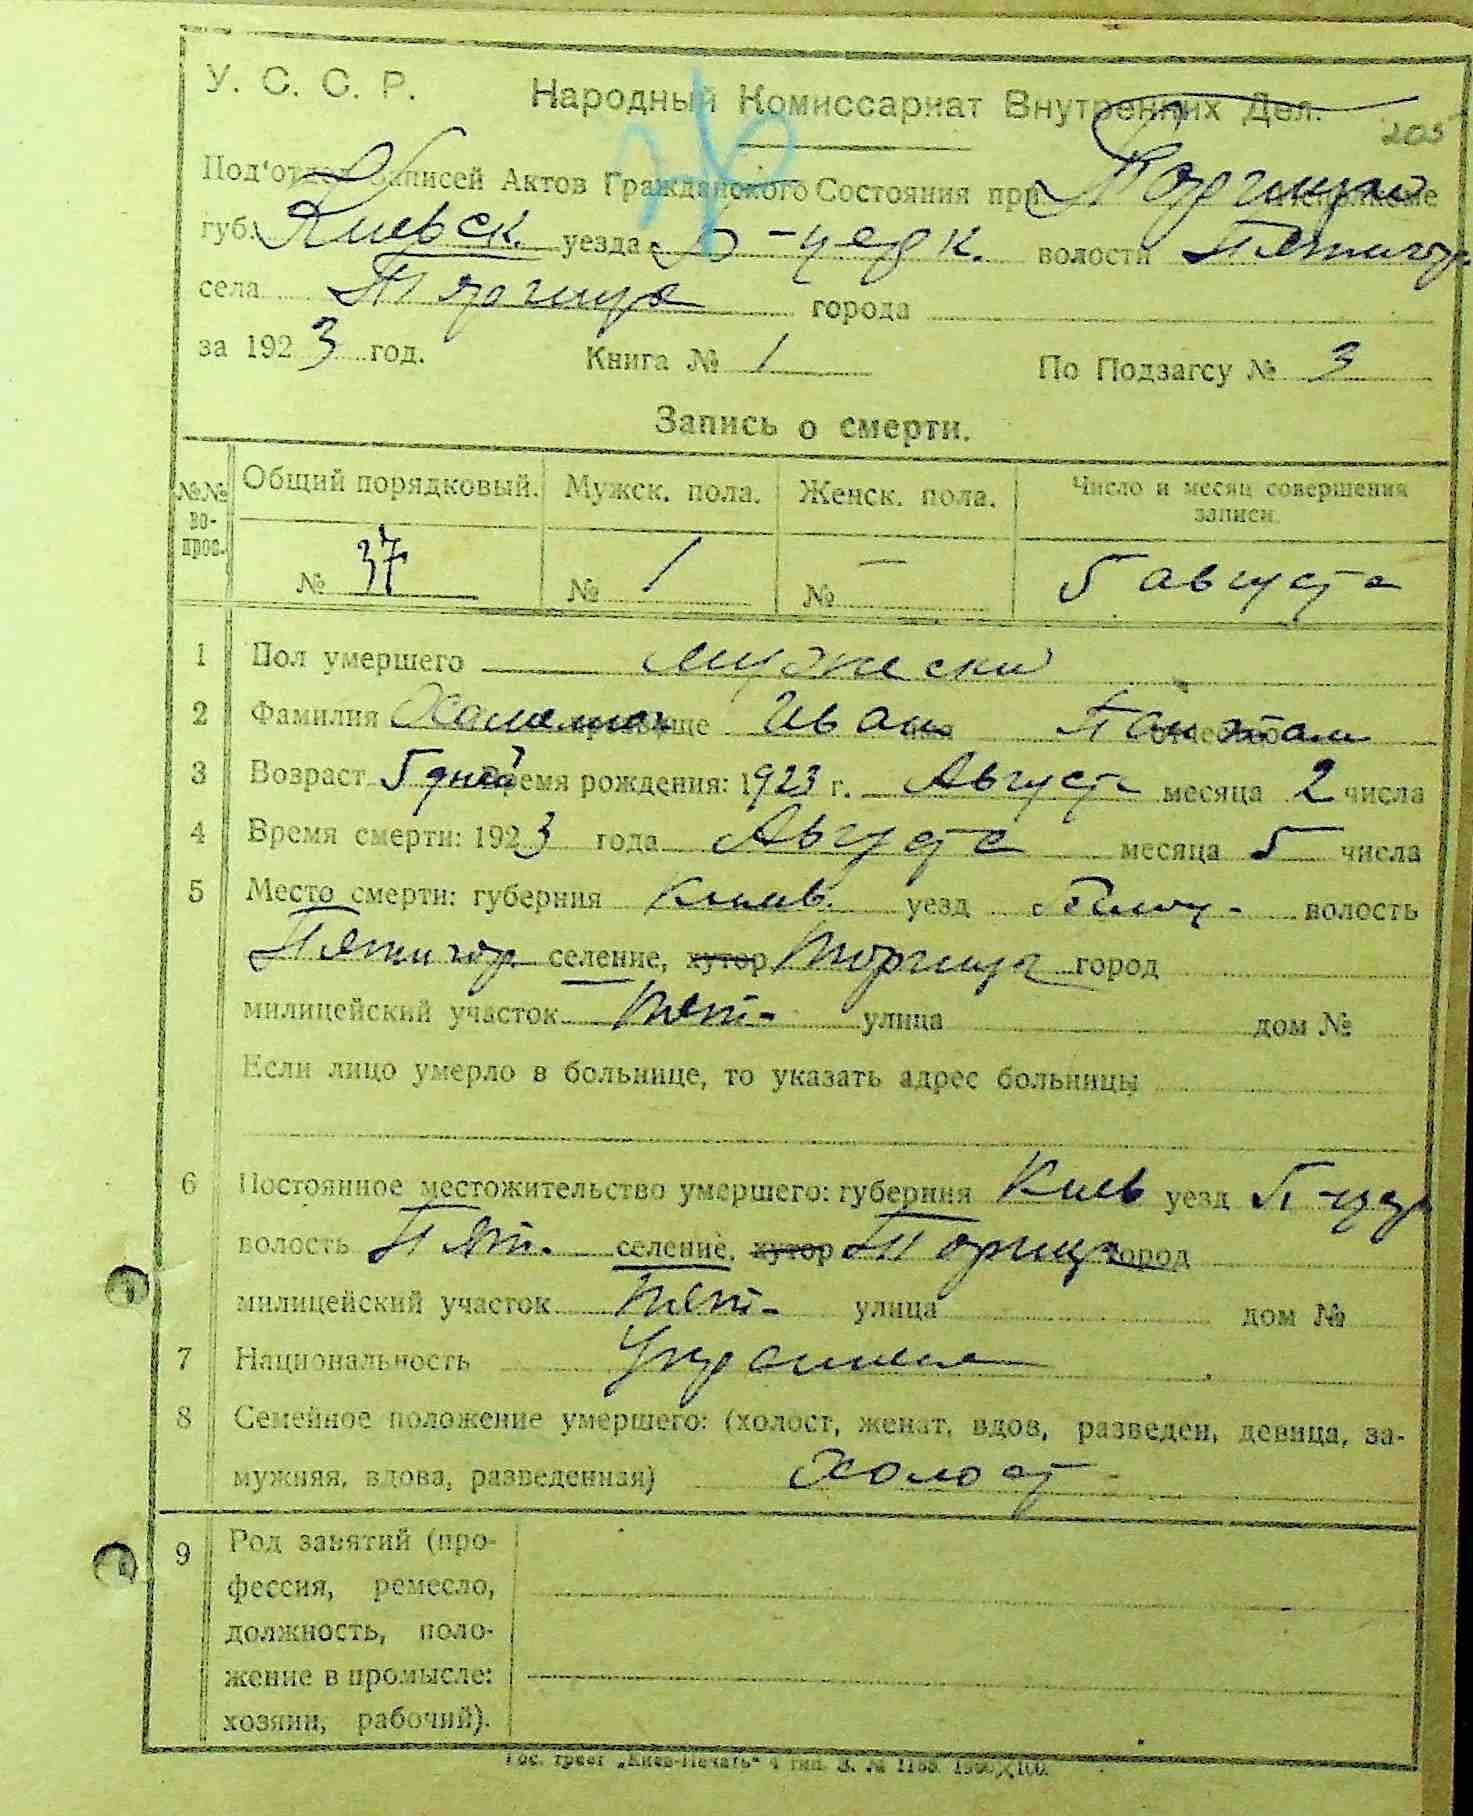 У. С. С. Р. Народный Комиссариат Внутренних Дел. 205
Под'отдел Записей Актов Гражданского Состояния при
губ. Киевск. уезда Б-церк. волости Пятигор.
села Торчица города
за 1923 год. Книга № 1 По Подзагсу № 3
Запись о смерти.
№№ во-прос. Общий порядковый. Мужск. пола. Женск. пола. Число и месяц совершения записи.
№ 37 № 1 № — 5 августа
1 Пол умершего мужески
2 Фамилия прозвище Иван имя отчество
3 Возраст 5 дней Время рождения: 1923 г. Августа месяца 2 числа
4 Время смерти: 1923 года Августа месяца 5 числа
5 Место смерти: губерния Киев. уезд волость
Пятигор. селение, хутор Торчица город
милицейский участок Пят- улица дом №
Если лицо умерло в больнице, то указать адрес больницы
6 Постоянное местожительство умершего: губерния Киев уезд Б-цер
волость Пят. селение, хутор Торчица город
милицейский участок Пят- улица дом №
7 Национальность
8 Семейное положение умершего: (холост, женат, вдов, разведен, девица, за-
мужняя, вдова, разведенная) холост
9 Род занятий (про-
фессия, ремесло,
должность, поло-
жение в промысле:
хозяин, рабочий).
Гос. трест „Киев-Печать“ 4 тип. З. №